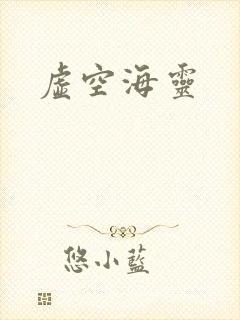 虛空海靈
悠小藍